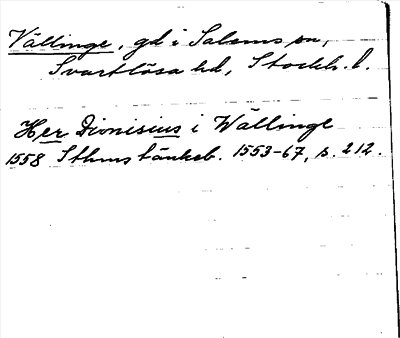 Vällinge, gd i Salems sn,
Svartlösa hd, Stockh. l.
Her Dionisius i Wällinge
1558 Sthms tänkeb. 1553-67, s. 212.